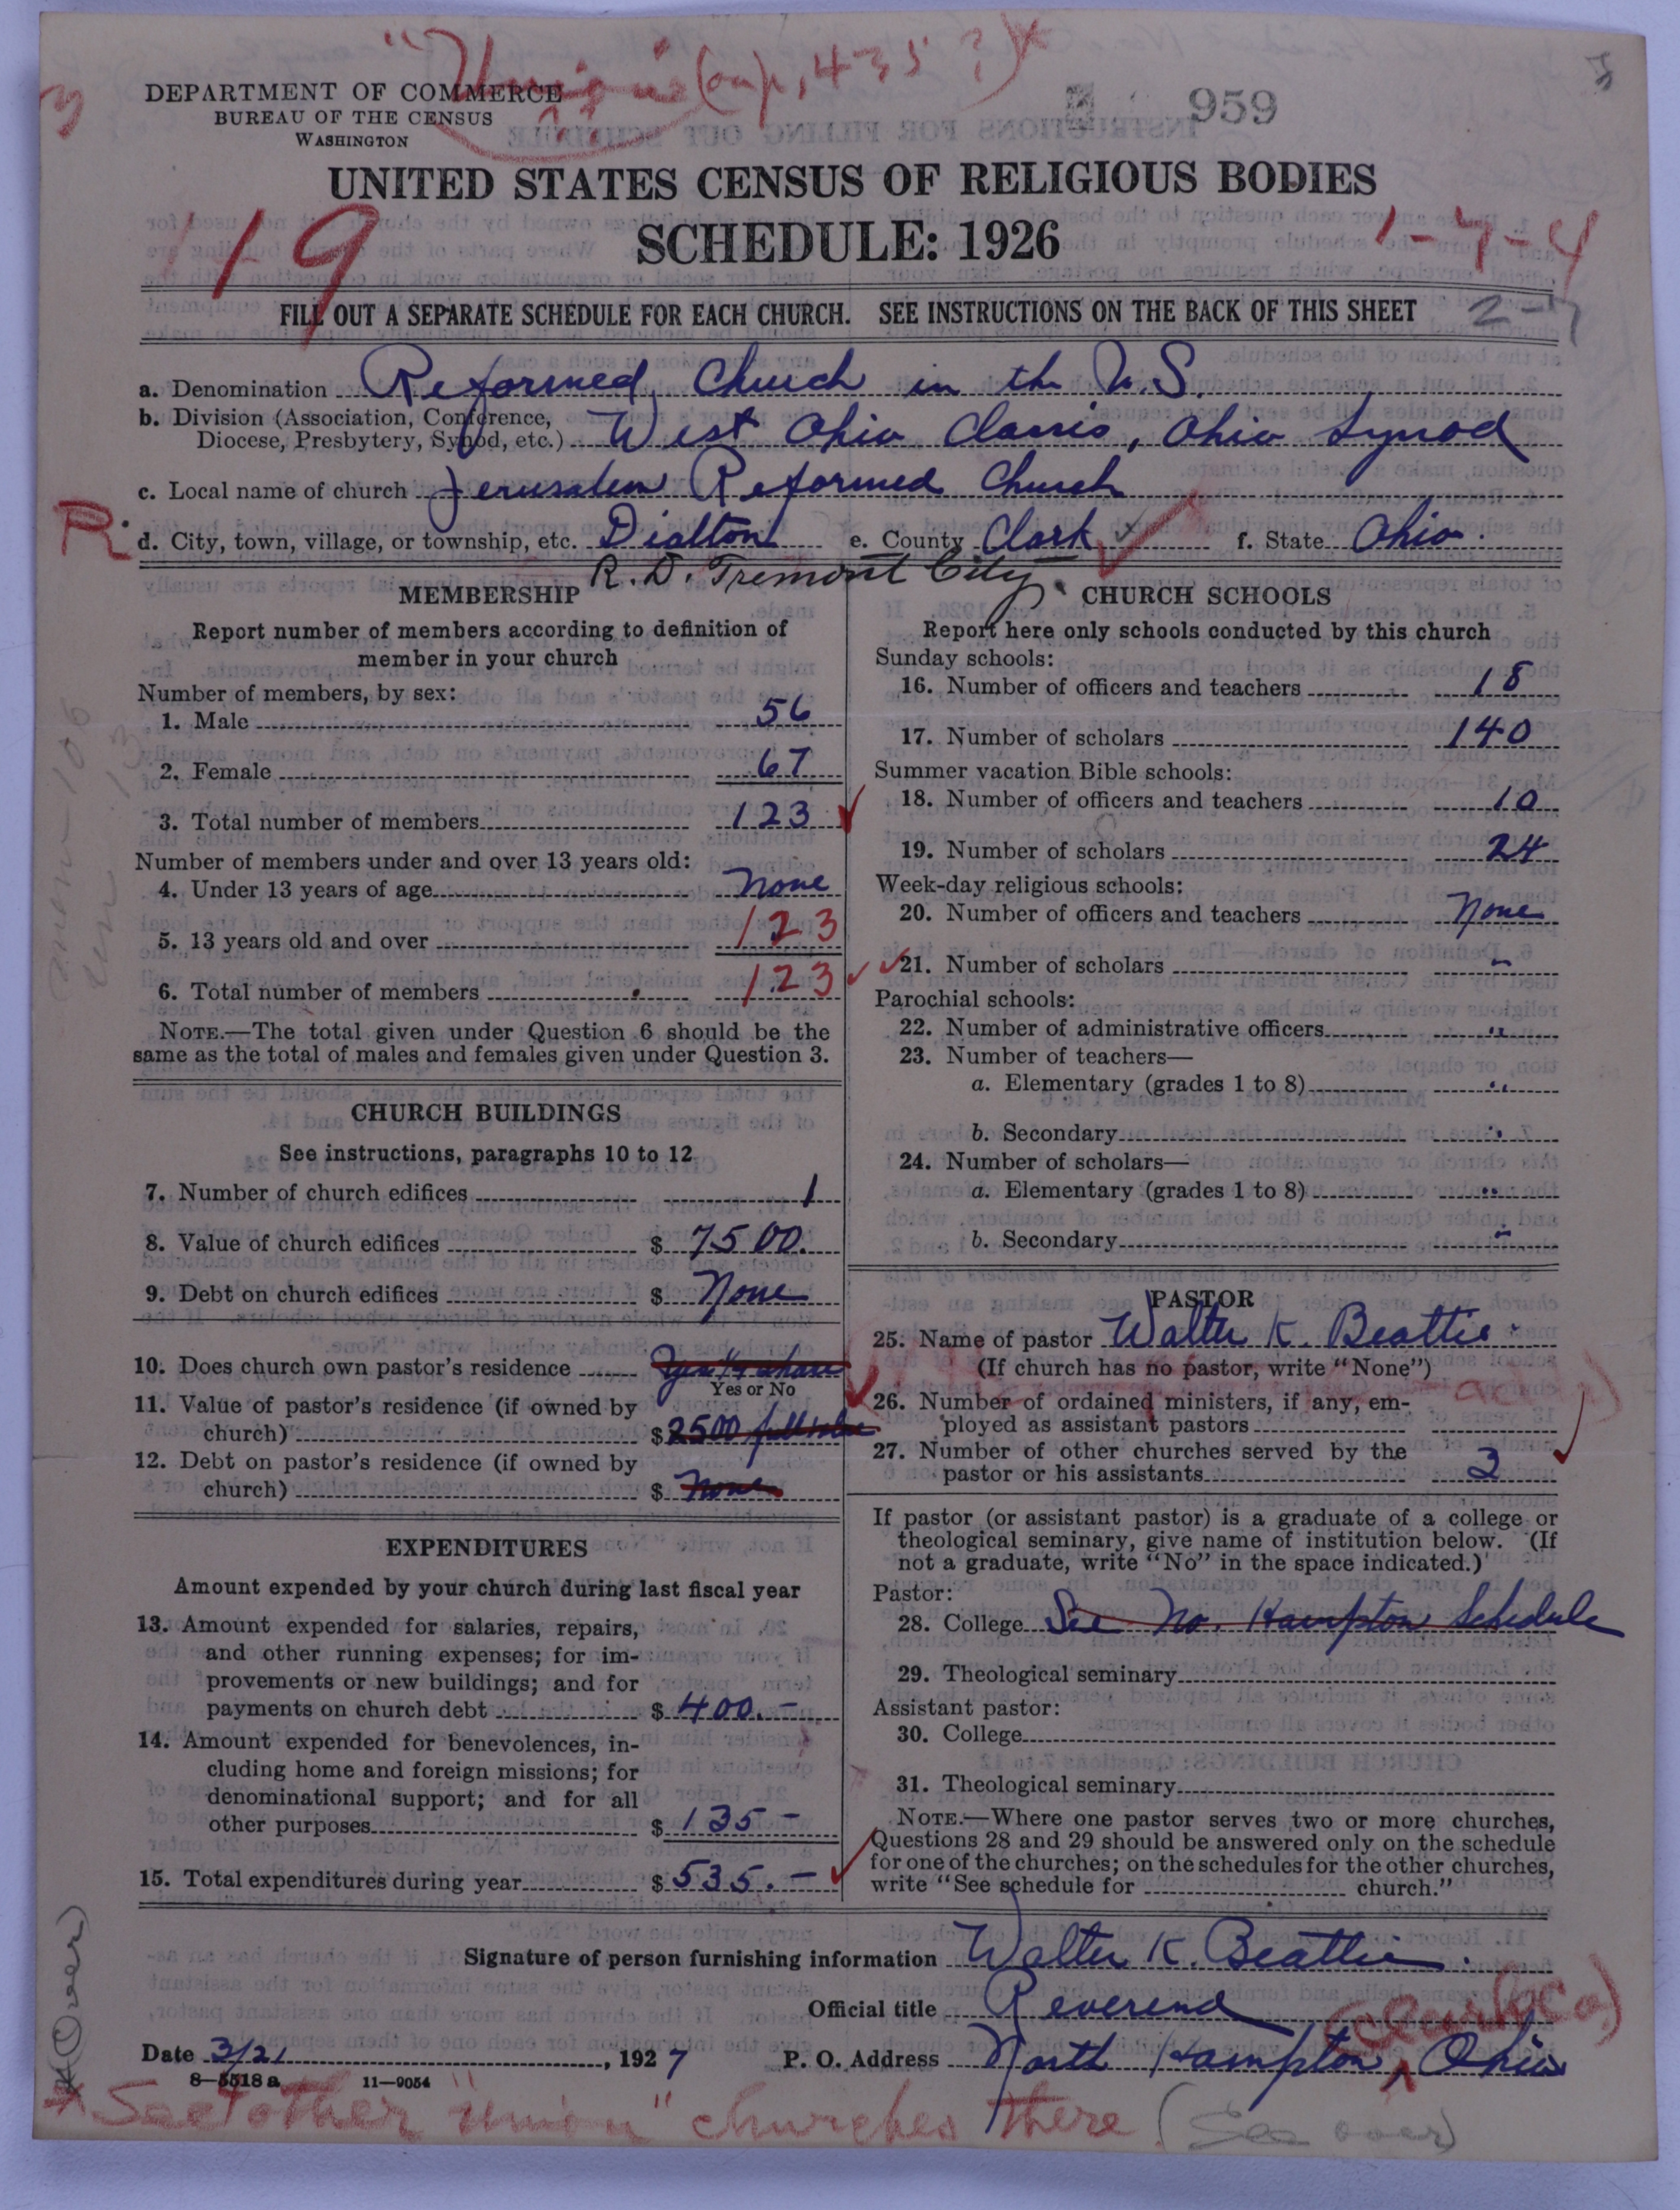 "Union" (on p. 435 ?)*
DEPARTMENT OF COMMERCE
BUREAU OF THE CENSUS
WASHINGTON
959
3
UNITED STATES CENSUS OF RELIGIOUS BODIES
SCHEDULE: 1926
119
1-7-4
FILL OUT A SEPARATE SCHEDULE FOR EACH CHURCH. SEE INSTRUCTIONS ON THE BACK OF THIS SHEET
a. Denomination Reformed Church in the U.S.
b. Division (Association, Conference, Diocese, Presbytery, Synod, etc.) West Ohio Classis, Ohio Synod
c. Local name of church Jerusalem Reformed Church
R. d. City, town, village, or township, etc. Dialton e. County Clark f. State Ohio.
R. D. Tremont City.
MEMBERSHIP
Report number of members according to definition of
member in your church
Number of members, by sex:
1. Male 56
2. Female 67
3. Total number of members 123
Number of members under and over 13 years old:
4. Under 13 years of age None
5. 13 years old and over 123
6. Total number of members 123
NOTE.—The total given under Question 6 should be the
same as the total of males and females given under Question 3.
CHURCH BUILDINGS
See instructions, paragraphs 10 to 12
7. Number of church edifices 1
8. Value of church edifices $ 7500.
9. Debt on church edifices $ None
10. Does church own pastor's residence Yes ¼ share
Yes or No
11. Value of pastor's residence (if owned by
church) $ 2500 full value
12. Debt on pastor's residence (if owned by
church) $ None
EXPENDITURES
Amount expended by your church during last fiscal year
13. Amount expended for salaries, repairs,
and other running expenses; for im-
provements or new buildings; and for
payments on church debt $ 400.-
14. Amount expended for benevolences, in-
cluding home and foreign missions; for
denominational support; and for all
other purposes $ 135-
15. Total expenditures during year $ 535.-
CHURCH SCHOOLS
Report here only schools conducted by this church
Sunday schools:
16. Number of officers and teachers 18
17. Number of scholars 140
Summer vacation Bible schools:
18. Number of officers and teachers 10
19. Number of scholars 24
Week-day religious schools:
20. Number of officers and teachers None
21. Number of scholars "
Parochial schools:
22. Number of administrative officers "
23. Number of teachers—
a. Elementary (grades 1 to 8) "
b. Secondary "
24. Number of scholars—
a. Elementary (grades 1 to 8) "
b. Secondary "
PASTOR
25. Name of pastor Walter K. Beattie.
(If church has no pastor, write "None")
26. Number of ordained ministers, if any, em-
ployed as assistant pastors
27. Number of other churches served by the
pastor or his assistants 3
If pastor (or assistant pastor) is a graduate of a college or
theological seminary, give name of institution below. (If
not a graduate, write "No" in the space indicated.)
Pastor:
28. College See No. Hampton Schedule
29. Theological seminary
Assistant pastor:
30. College
31. Theological seminary
NOTE.—Where one pastor serves two or more churches,
Questions 28 and 29 should be answered only on the schedule
for one of the churches; on the schedules for the other churches,
write "See schedule for church."
Signature of person furnishing information Walter K. Beattie.
Official title Reverend
(Clark Co.)
Date 3/21, 1927 P. O. Address North Hampton, Ohio
8—5518 a 11—9054
* See other "Union" churches there (See over)
*(Over)